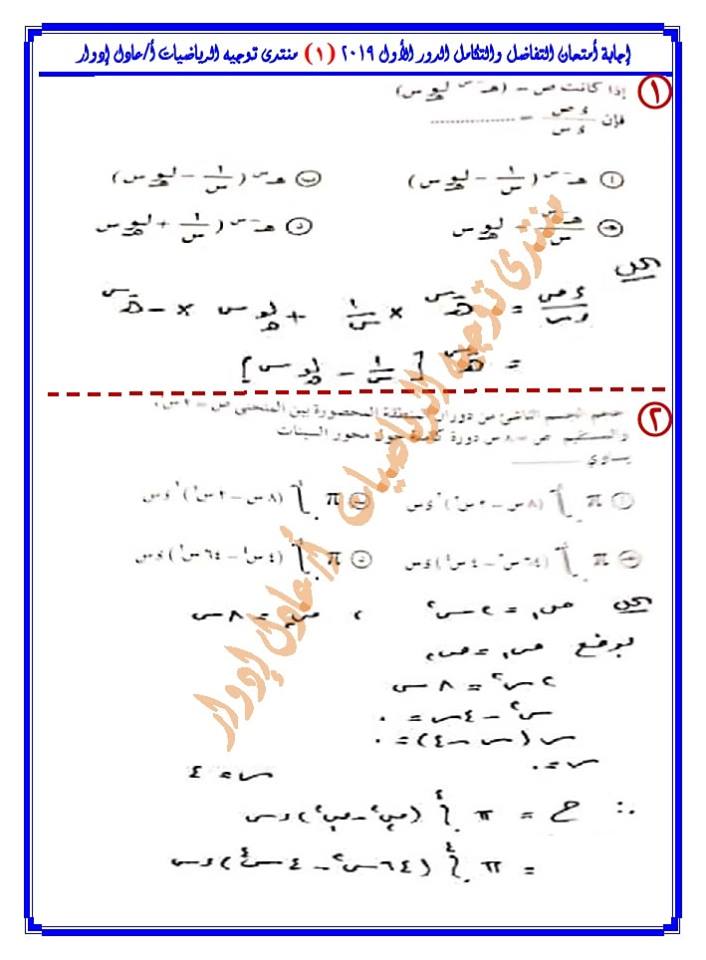 إجابة أمتحان التفاضل والتكامل الدور الأول ٢٠١٩ (١) منتدى توجيه الرياضيات أ/عادل إدوار
١ إذا كانت ص = (هـ⁻ˢ لو س)
فإن ءص/ءس = ................
أ هـ⁻س (١/س − لو هـ س) ب هـ س (١/س − لو هـ س)
جـ هـ⁻س/س − لو هـ س د هـ⁻س (١/س + لو هـ س)
الحل
ءص/ءس = هـ⁻س × ١/س + لو هـ س × −هـ⁻س
= هـ⁻س [١/س − لو هـ س]
٢ حجم الجسم الناشئ من دوران المنطقة المحصورة بين المنحنى ص = ٢ س²
والمستقيم ص = ٨ س دورة كاملة حول محور السينات
يساوي
أ π ∫ (٨ س − ٢ س²)² ءس ب π ∫ (٨ س − ٢ س²)² ءس
جـ π ∫ (٦٤ س² − ٤ س⁴) ءس د π ∫ (٤ س⁴ − ٦٤ س²) ءس
الحل ص₁ = ٢ س² ، ص₂ = ٨ س
بوضع ص₁ = ص₂
٢ س² = ٨ س
س² − ٤ س = ٠
س (س − ٤) = ٠
س = ٠ س = ٤
∴ ح = π ∫ (ص₂² − ص₁²) ءس
= π ∫ (٦٤ س² − ٤ س⁴) ءس
منتدى توجيه الرياضيات أ/عادل إدوار